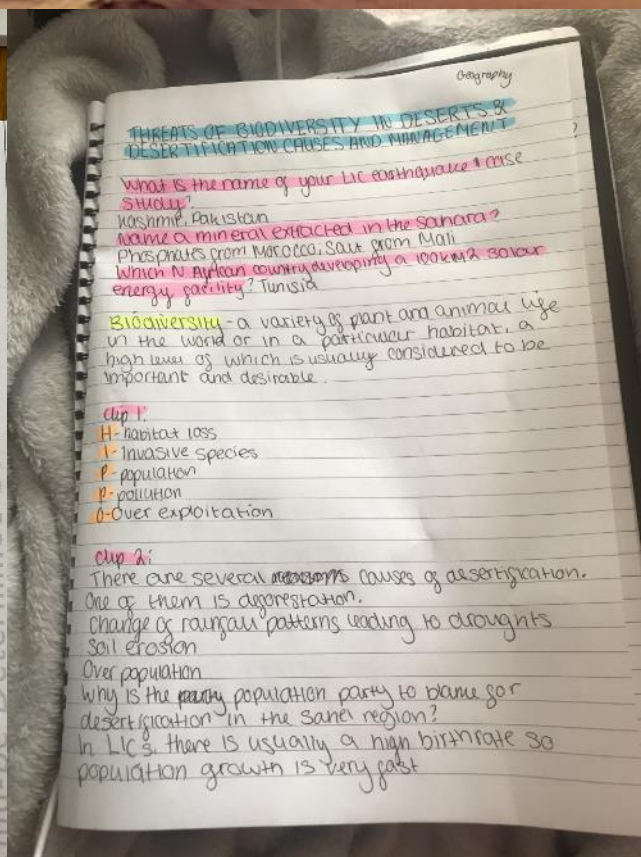 Geography
THREATS OF BIODIVERSITY IN DESERTS &
DESERTIFICATION CAUSES AND MANAGEMENT
What is the name of your LIC earthquake case
study?
Kashmir, Pakistan
Name a mineral extracted in the Sahara?
Phosphates from Morocco, Salt from Mali
Which N African country developing a 100km2 solar
energy facility? Tunisia
Biodiversity - a variety of plant and animal life
in the world or in a particular habitat, a
high level of which is usually considered to be
important and desirable.
clip 1:
H- habitat loss
I- Invasive species
P- population
P- pollution
O- Over exploitation
clip 2:
There are several causes of desertification.
One of them is deforestation.
Change of rainfall patterns leading to droughts
Soil erosion
Over population
Why is the population party to blame for
desertification in the Sahel region?
In LICs, there is usually a high birthrate so
population growth is very fast